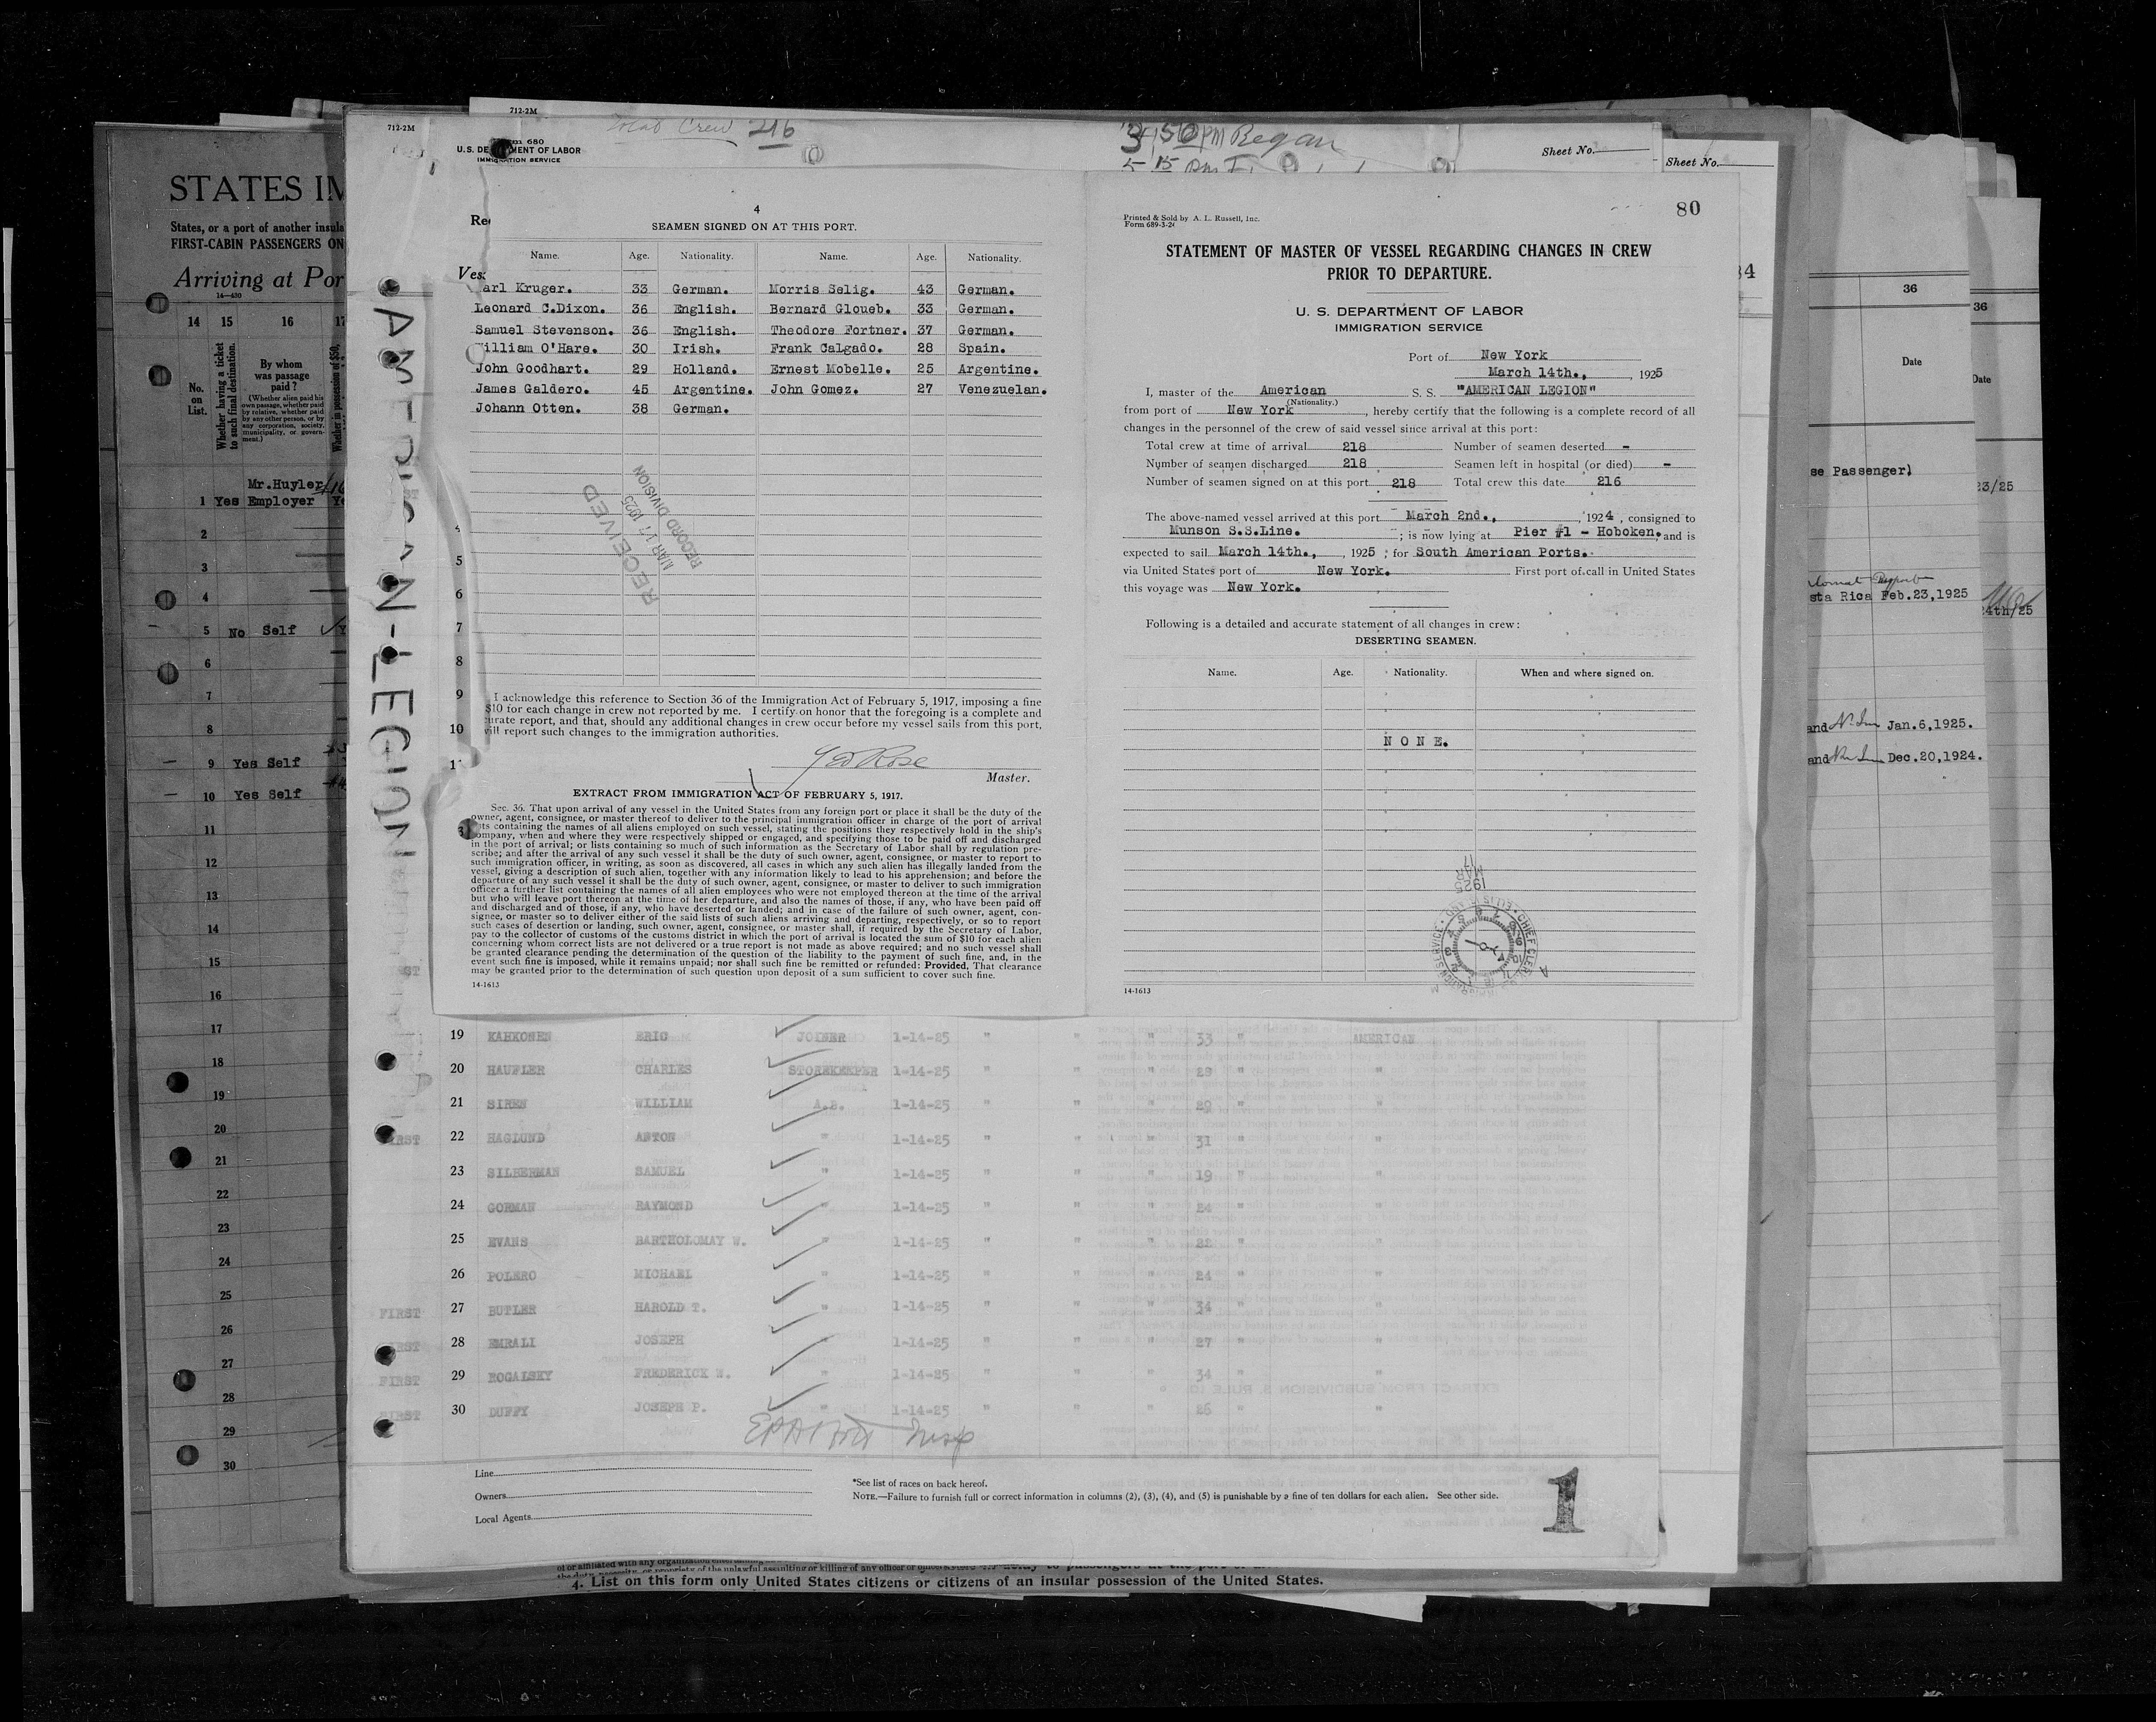 712-2M
712-2M
Total Crew 216
U.S. DE MENT OF LABOR
IMMIGRATION SERVICE
3 50 PM Began
5 15 pm
Sheet No.
Sheet No.
STATES IM
States, or a port of another insula
FIRST-CABIN PASSENGERS ON
Arriving at Por
14—430
14 15 16 17
No. on List.
Whether having a ticket to such final destination.
By whom was passage paid?
(Whether alien paid his own passage, whether paid by relative, whether paid by any other person, or by any corporation, society, municipality, or government.)
Whether in possession of $50,
Mr.Huyler
1 Yes Employer Ye
2
3
4
5 No Self
6
7
8
9 Yes Self
10 Yes Self
11
12
13
14
15
16
17
18
19
20
21
22
23
24
25
26
27
28
29
30
AMERICAN-LEGION
Re
Ves
4
SEAMEN SIGNED ON AT THIS PORT.
Name. Age. Nationality. Name. Age. Nationality.
arl Kruger. 33 German. Morris Selig. 43 German.
Leonard C.Dixon. 36 English. Bernard Gloueb. 33 German.
Samuel Stevenson. 36 English. Theodore Fortner. 37 German.
William O'Hare. 30 Irish. Frank Calgado. 28 Spain.
John Goodhart. 29 Holland. Ernest Mobelle. 25 Argentine.
James Galdero. 45 Argentine. John Gomez. 27 Venezuelan.
Johann Otten. 38 German.
RECEIVED
MAR 17 1925
RECORD DIVISION
4
5
6
7
8
9
10
I acknowledge this reference to Section 36 of the Immigration Act of February 5, 1917, imposing a fine
$10 for each change in crew not reported by me. I certify on honor that the foregoing is a complete and
urate report, and that, should any additional changes in crew occur before my vessel sails from this port,
ill report such changes to the immigration authorities.
Geo Rose
Master.
EXTRACT FROM IMMIGRATION ACT OF FEBRUARY 5, 1917.
Sec. 36. That upon arrival of any vessel in the United States from any foreign port or place it shall be the duty of the
owner, agent, consignee, or master thereof to deliver to the principal immigration officer in charge of the port of arrival
ists containing the names of all aliens employed on such vessel, stating the positions they respectively hold in the ship's
ompany, when and where they were respectively shipped or engaged, and specifying those to be paid off and discharged
in the port of arrival; or lists containing so much of such information as the Secretary of Labor shall by regulation pre-
scribe; and after the arrival of any such vessel it shall be the duty of such owner, agent, consignee, or master to report to
such immigration officer, in writing, as soon as discovered, all cases in which any such alien has illegally landed from the
vessel, giving a description of such alien, together with any information likely to lead to his apprehension; and before the
departure of any such vessel it shall be the duty of such owner, agent, consignee, or master to deliver to such immigration
officer a further list containing the names of all alien employees who were not employed thereon at the time of the arrival
but who will leave port thereon at the time of her departure, and also the names of those, if any, who have been paid off
and discharged and of those, if any, who have deserted or landed; and in case of the failure of such owner, agent, con-
signee, or master so to deliver either of the said lists of such aliens arriving and departing, respectively, or so to report
such cases of desertion or landing, such owner, agent, consignee, or master shall, if required by the Secretary of Labor,
pay to the collector of customs of the customs district in which the port of arrival is located the sum of $10 for each alien
concerning whom correct lists are not delivered or a true report is not made as above required; and no such vessel shall
be granted clearance pending the determination of the question of the liability to the payment of such fine, and, in the
event such fine is imposed, while it remains unpaid; nor shall such fine be remitted or refunded: Provided, That clearance
may be granted prior to the determination of such question upon deposit of a sum sufficient to cover such fine.
14-1613
80
Printed & Sold by A. L. Russell, Inc.
Form 689-3-2
STATEMENT OF MASTER OF VESSEL REGARDING CHANGES IN CREW
PRIOR TO DEPARTURE.
U. S. DEPARTMENT OF LABOR
IMMIGRATION SERVICE
Port of New York
March 14th., , 1925
I, master of the American S. S. "AMERICAN LEGION"
(Nationality.)
from port of New York , hereby certify that the following is a complete record of all
changes in the personnel of the crew of said vessel since arrival at this port:
Total crew at time of arrival 218 Number of seamen deserted -
Number of seamen discharged 218 Seamen left in hospital (or died) -
Number of seamen signed on at this port 218 Total crew this date 216
The above-named vessel arrived at this port March 2nd., , 1924 , consigned to
Munson S.S.Line. ; is now lying at Pier #1 - Hoboken. and is
expected to sail March 14th., , 1925 ; for South American Ports.
via United States port of New York. First port of call in United States
this voyage was New York.
Following is a detailed and accurate statement of all changes in crew:
DESERTING SEAMEN.
Name. Age. Nationality. When and where signed on.
NONE.
1925
MAR
17
14-1613
84
36
36
Date
Date
se Passenger)
23/25
sta Rica Feb.23,1925
24th/25
and Jan.6,1925.
and Dec.20,1924.
19 KAHKONEN ERIC JOINER 1-14-25 " " " 33 " AMERICAN
20 HAUFLER CHARLES STOREKEEPER 1-14-25 " " " 29 " "
21 SIREN WILLIAM A.B. 1-14-25 " " " 29 " "
22 HAGLUND ANTON " 1-14-25 " " " 31 " "
23 SILBERMAN SAMUEL " 1-14-25 " " " 19 " "
24 GORMAN RAYMOND " 1-14-25 " " " 24 " "
25 EVANS BARTHOLOMAY W. " 1-14-25 " " " 22 " "
26 POLERO MICHAEL " 1-14-25 " " " 24 " "
FIRST 27 BUTLER HAROLD T. " 1-14-25 " " " 34 " "
RST 28 EMRALI JOSEPH " 1-14-25 " " " 27 " "
FIRST 29 ROGALSKY FREDERICK W. " 1-14-25 " " " 34 " "
FIRST 30 DUFFY JOSEPH P. " 1-14-25 " " " 26 " "
Insp
Line
Owners
Local Agents
*See list of races on back hereof.
NOTE.—Failure to furnish full or correct information in columns (2), (3), (4), and (5) is punishable by a fine of ten dollars for each alien. See other side.
1
4. List on this form only United States citizens or citizens of an insular possession of the United States.